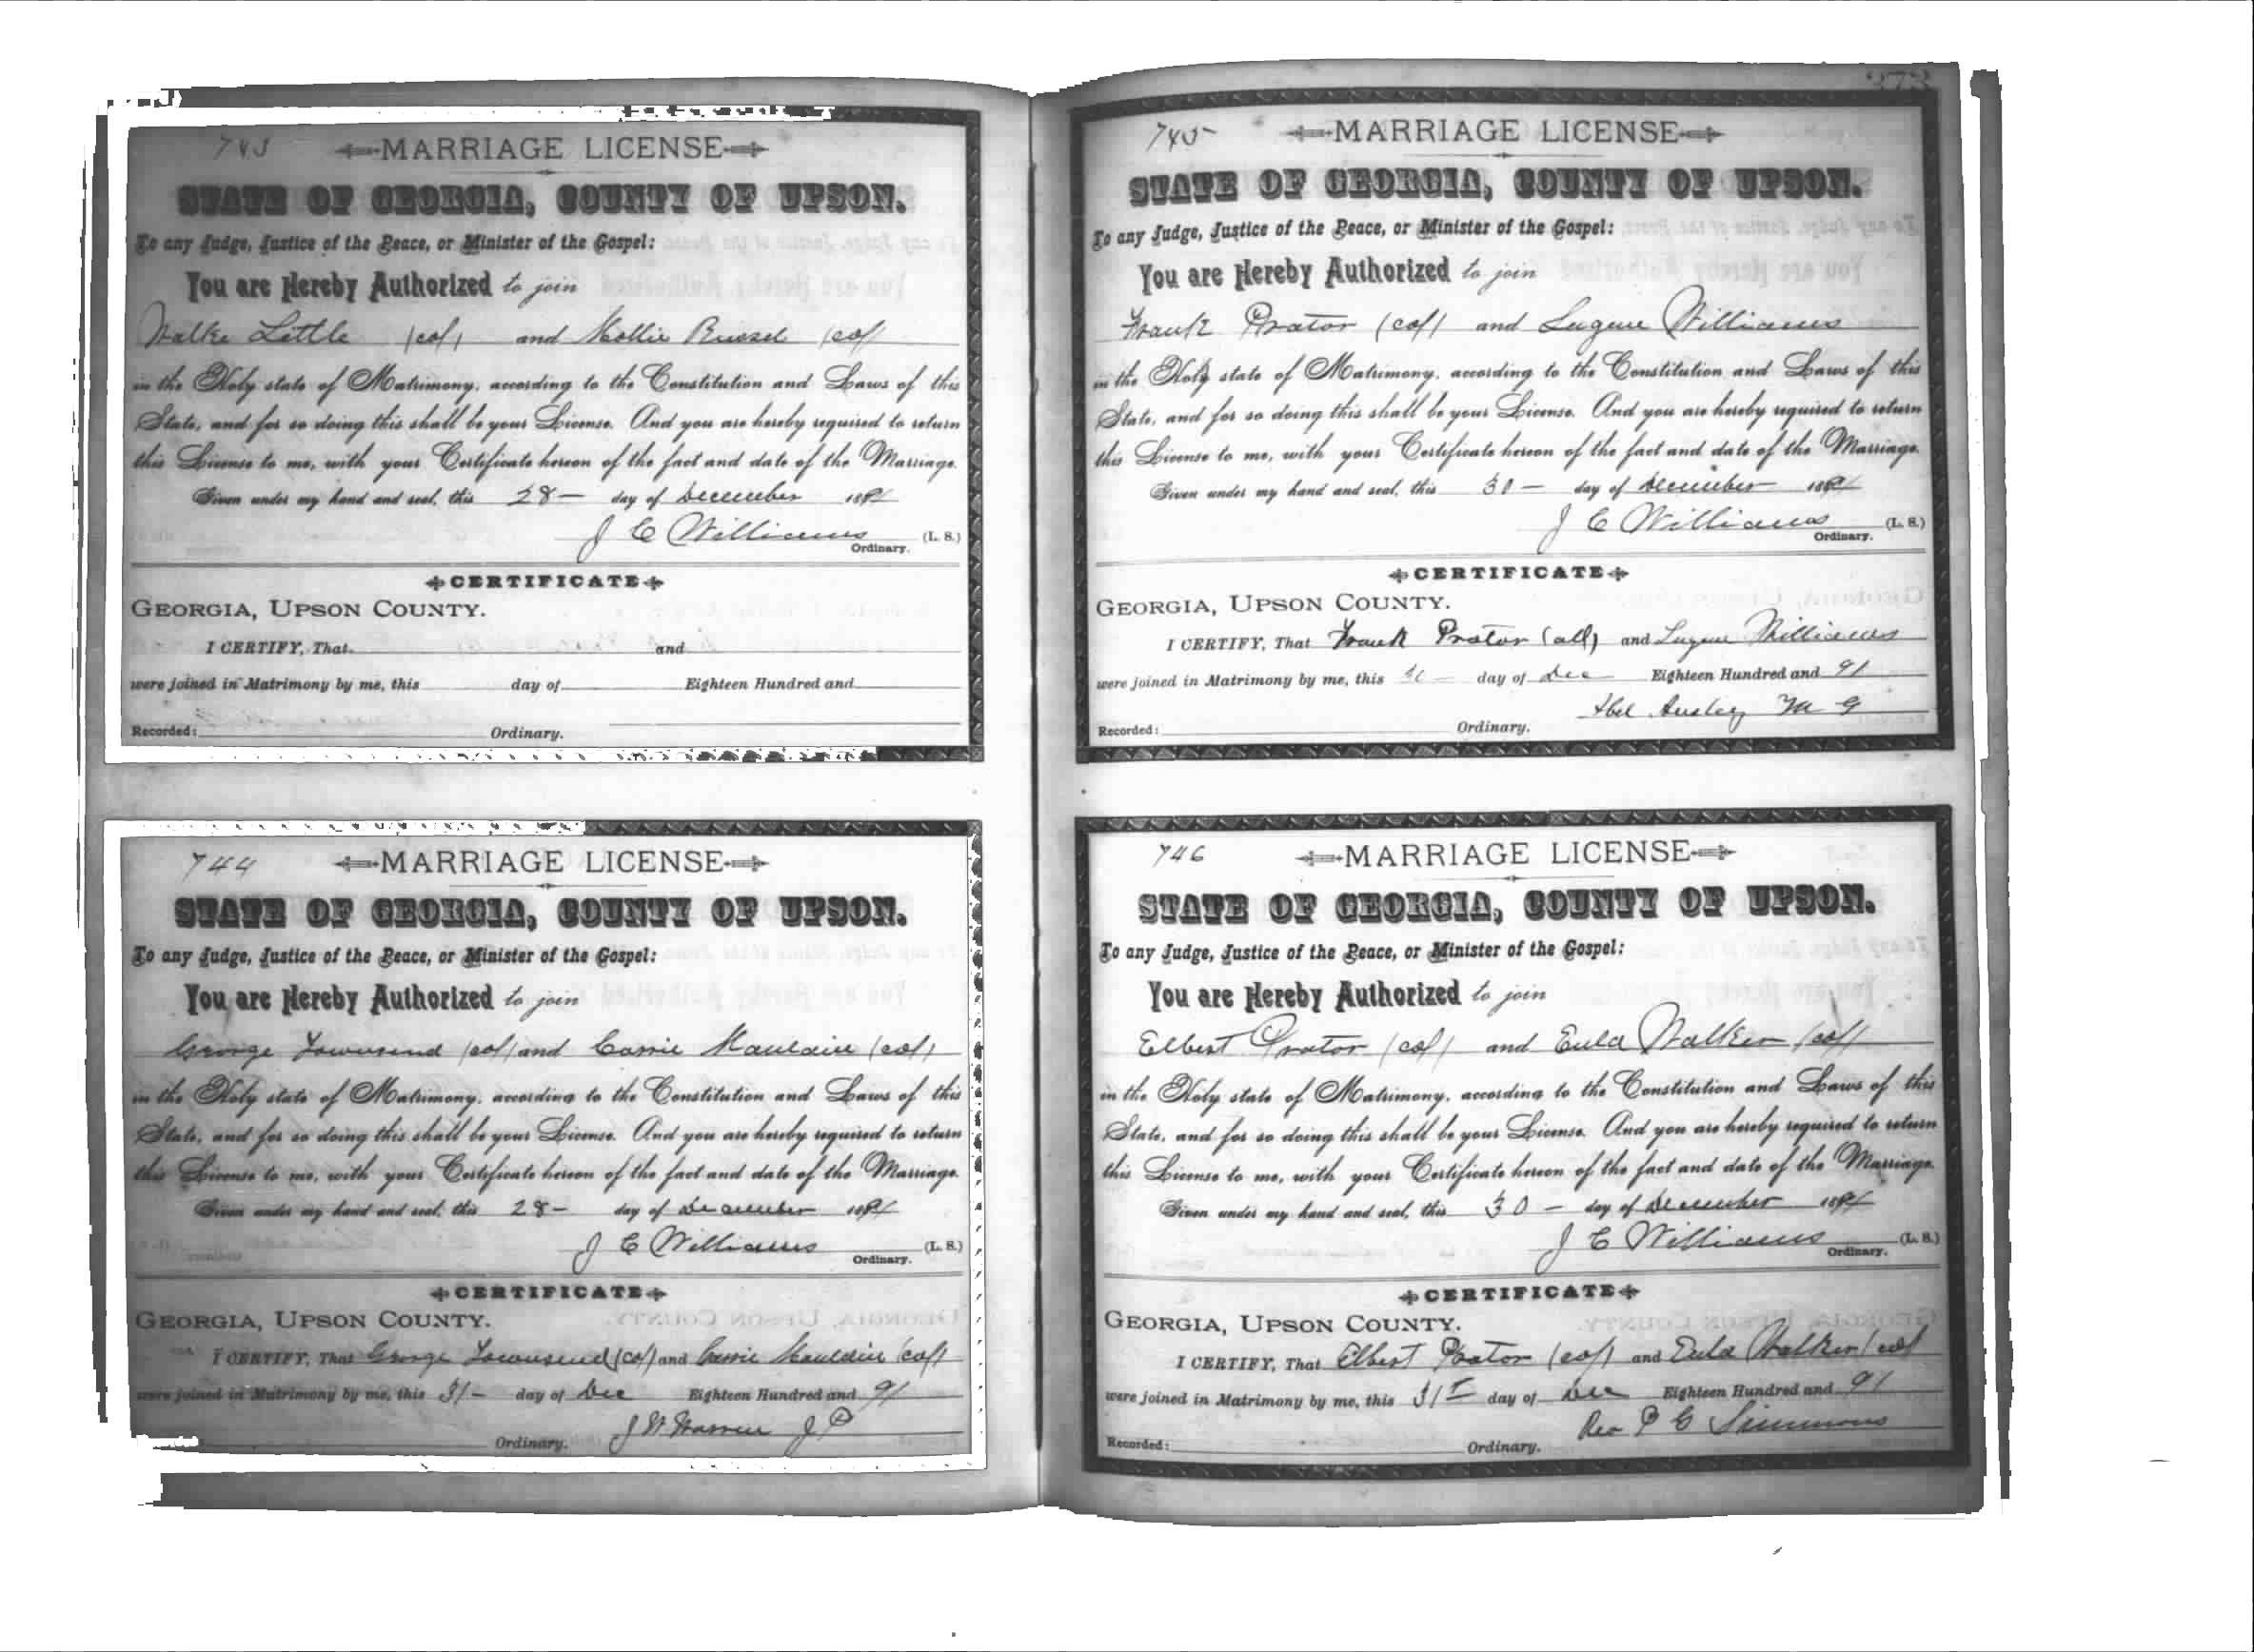 743 MARRIAGE LICENSE
STATE OF GEORGIA, COUNTY OF UPSON.
To any Judge, Justice of the Peace, or Minister of the Gospel:
You are Hereby Authorized to join
Walke Little (col) and Mollie Russel (col)
in the Holy state of Matrimony, according to the Constitution and Laws of this
State, and for so doing this shall be your License. And you are hereby required to return
this License to me, with your Certificate hereon of the fact and date of the Marriage.
Given under my hand and seal, this 28 — day of December 1891
J C Williams (L. S.)
Ordinary.
CERTIFICATE
GEORGIA, UPSON COUNTY.
I CERTIFY, That and
were joined in Matrimony by me, this day of Eighteen Hundred and
Recorded: Ordinary.
744 MARRIAGE LICENSE
STATE OF GEORGIA, COUNTY OF UPSON.
To any Judge, Justice of the Peace, or Minister of the Gospel:
You are Hereby Authorized to join
George Townsend (col) and Carrie Mauldin (col)
in the Holy state of Matrimony, according to the Constitution and Laws of this
State, and for so doing this shall be your License. And you are hereby required to return
this License to me, with your Certificate hereon of the fact and date of the Marriage.
Given under my hand and seal, this 28 — day of December 1891
J C Williams (L. S.)
Ordinary.
CERTIFICATE
GEORGIA, UPSON COUNTY.
I CERTIFY, That George Townsend (col) and Carrie Mauldin (col)
were joined in Matrimony by me, this 31 — day of Dec Eighteen Hundred and 91
J W J P
Ordinary.
373
745 MARRIAGE LICENSE
STATE OF GEORGIA, COUNTY OF UPSON.
To any Judge, Justice of the Peace, or Minister of the Gospel:
You are Hereby Authorized to join
Frank Prator (col) and Eugene Williams
in the Holy state of Matrimony, according to the Constitution and Laws of this
State, and for so doing this shall be your License. And you are hereby required to return
this License to me, with your Certificate hereon of the fact and date of the Marriage.
Given under my hand and seal, this 30 — day of December 1891
J C Williams (L. S.)
Ordinary.
CERTIFICATE
GEORGIA, UPSON COUNTY.
I CERTIFY, That Frank Prator (col) and Eugene Williams
were joined in Matrimony by me, this 30 — day of Dec Eighteen Hundred and 91
Abel Ansley M G
Recorded: Ordinary.
746 MARRIAGE LICENSE
STATE OF GEORGIA, COUNTY OF UPSON.
To any Judge, Justice of the Peace, or Minister of the Gospel:
You are Hereby Authorized to join
Elbert Prator (col) and Eula Walker (col)
in the Holy state of Matrimony, according to the Constitution and Laws of this
State, and for so doing this shall be your License. And you are hereby required to return
this License to me, with your Certificate hereon of the fact and date of the Marriage.
Given under my hand and seal, this 30 — day of December 1891
J C Williams (L. S.)
Ordinary.
CERTIFICATE
GEORGIA, UPSON COUNTY.
I CERTIFY, That Elbert Prator (col) and Eula Walker (col)
were joined in Matrimony by me, this 31st day of Dec Eighteen Hundred and 91
Rev P G Simmons
Recorded: Ordinary.